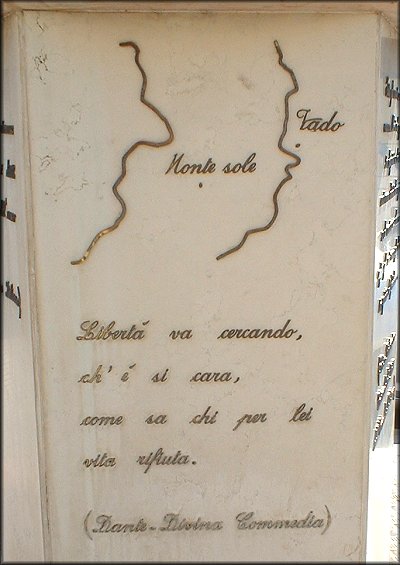 Tado
Monte sole
Libertá va cercando,
ch' é si cara,
come sa chi per lei
vita rifiuta.
(Dante-Divina Commedia)